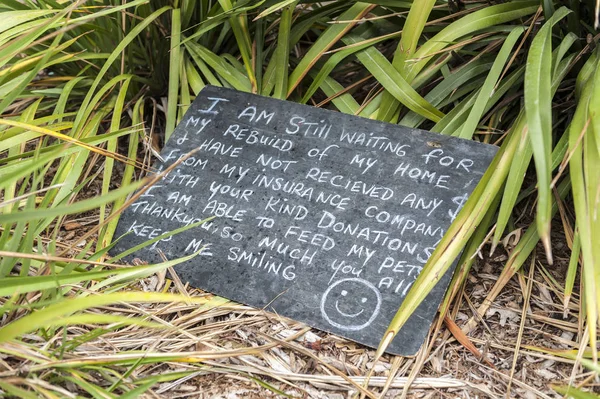 I AM Still WAITING FOR
MY REBUILD OF MY HOME !
I HAVE NOT RECIEVED ANY $
FROM MY INSURANCE COMPANY
WITH YOUR KIND DONATIONS
I AM ABLE TO FEED MY PETS
THANKYOU SO MUCH YOU All
KEEP ME SMILING